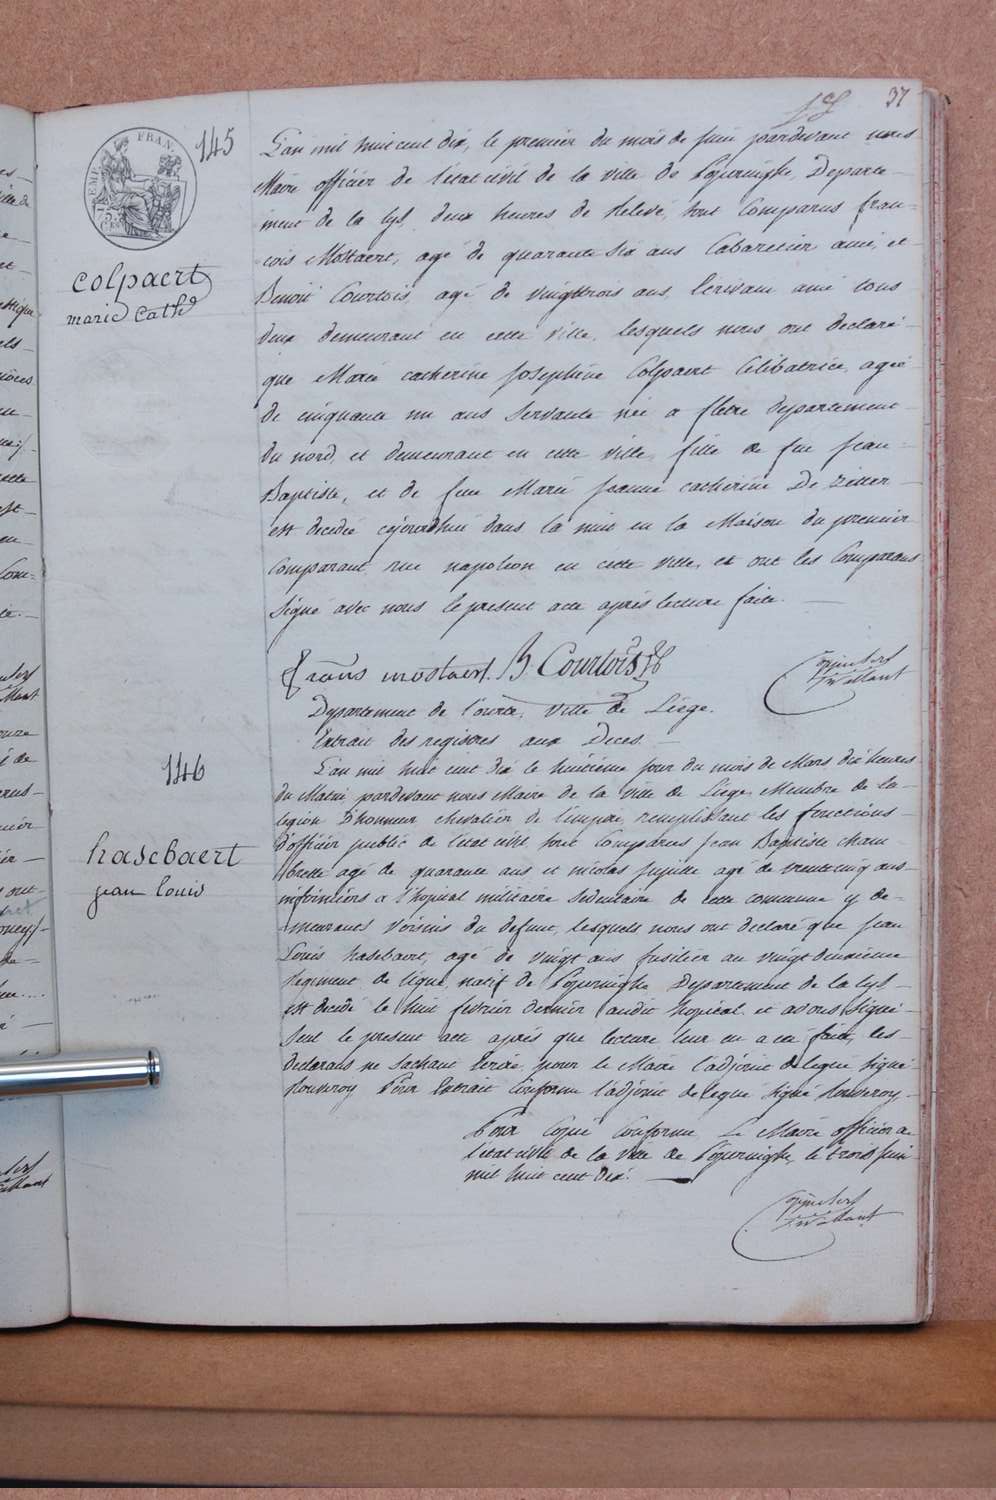 37
145
L'an mil huit cent dix, le premier du mois de juin pardevant nous
Maire officier de l'etat civil de la ville de Poperinghe, Departe-
ment de la Lys, deux heures de relevé, sont Comparus fran-
cois Mostaert, agé de quarante six ans Cabaretier ami, et
Benoit Courtois, agé de vingttrois ans, Ecrivain ami tous
deux demeurant en cette ville, lesquels nous ont declaré
que Marie catherine josephine Colpaert Celibatrice, agée
de cinquante un ans Servante née a fletre departement
du nord, et demeurant en cette ville, fille de feu jean-
Baptiste, et de feue Marie jeanne catherine De Zitter
est decedée cejourdhui dans la nuit en la Maison du premier
Comparant rue napoleon en cette ville, et ont les Comparans
Signé avec nous le present acte après lecture faite.
colpaert
marie Cath
frans mostaert. B Courtois
Departement de l'ourte, Ville de Liége.
Extrait des registres aux Deces.
146
L'an mil huit cent dix le huitième jour du mois de Mars dix heures
du Matin pardevant nous Maire de la ville de Liége, Membre de la
legion d'honneur chevalier de l'empire, remplissant les fonctions
d'officier public de l'etat civil, sont Comparus jean Baptiste Cham-
brette agé de quarante ans et nicolas agé de trente cinq ans
infirmiers a l'hopital militaire Sedentaire de cette commune y de-
meurants Voisins du defunt, lesquels nous ont declaré que jean
Louis hasebaert, agé de vingt ans fusilier au vingt deuxieme
Regiment de ligne, natif de Poperinghe Departement de la Lys
est decedé le huit fevrier dernier audit hopital et avons Signé
Seul le present acte après que lecture leur en a eté faite, les
declarans ne Sachant Ecrire, pour le Maire l'adjoint delegué Signé
Rouveroy Pour Extrait Conforme l'adjoint delegué Signé Rouveroy
hasebaert
jean louis
Pour Copie Conforme Le Maire officier de
l'etat civil de la ville de Poperinghe, le trois juin
mil huit cent dix.